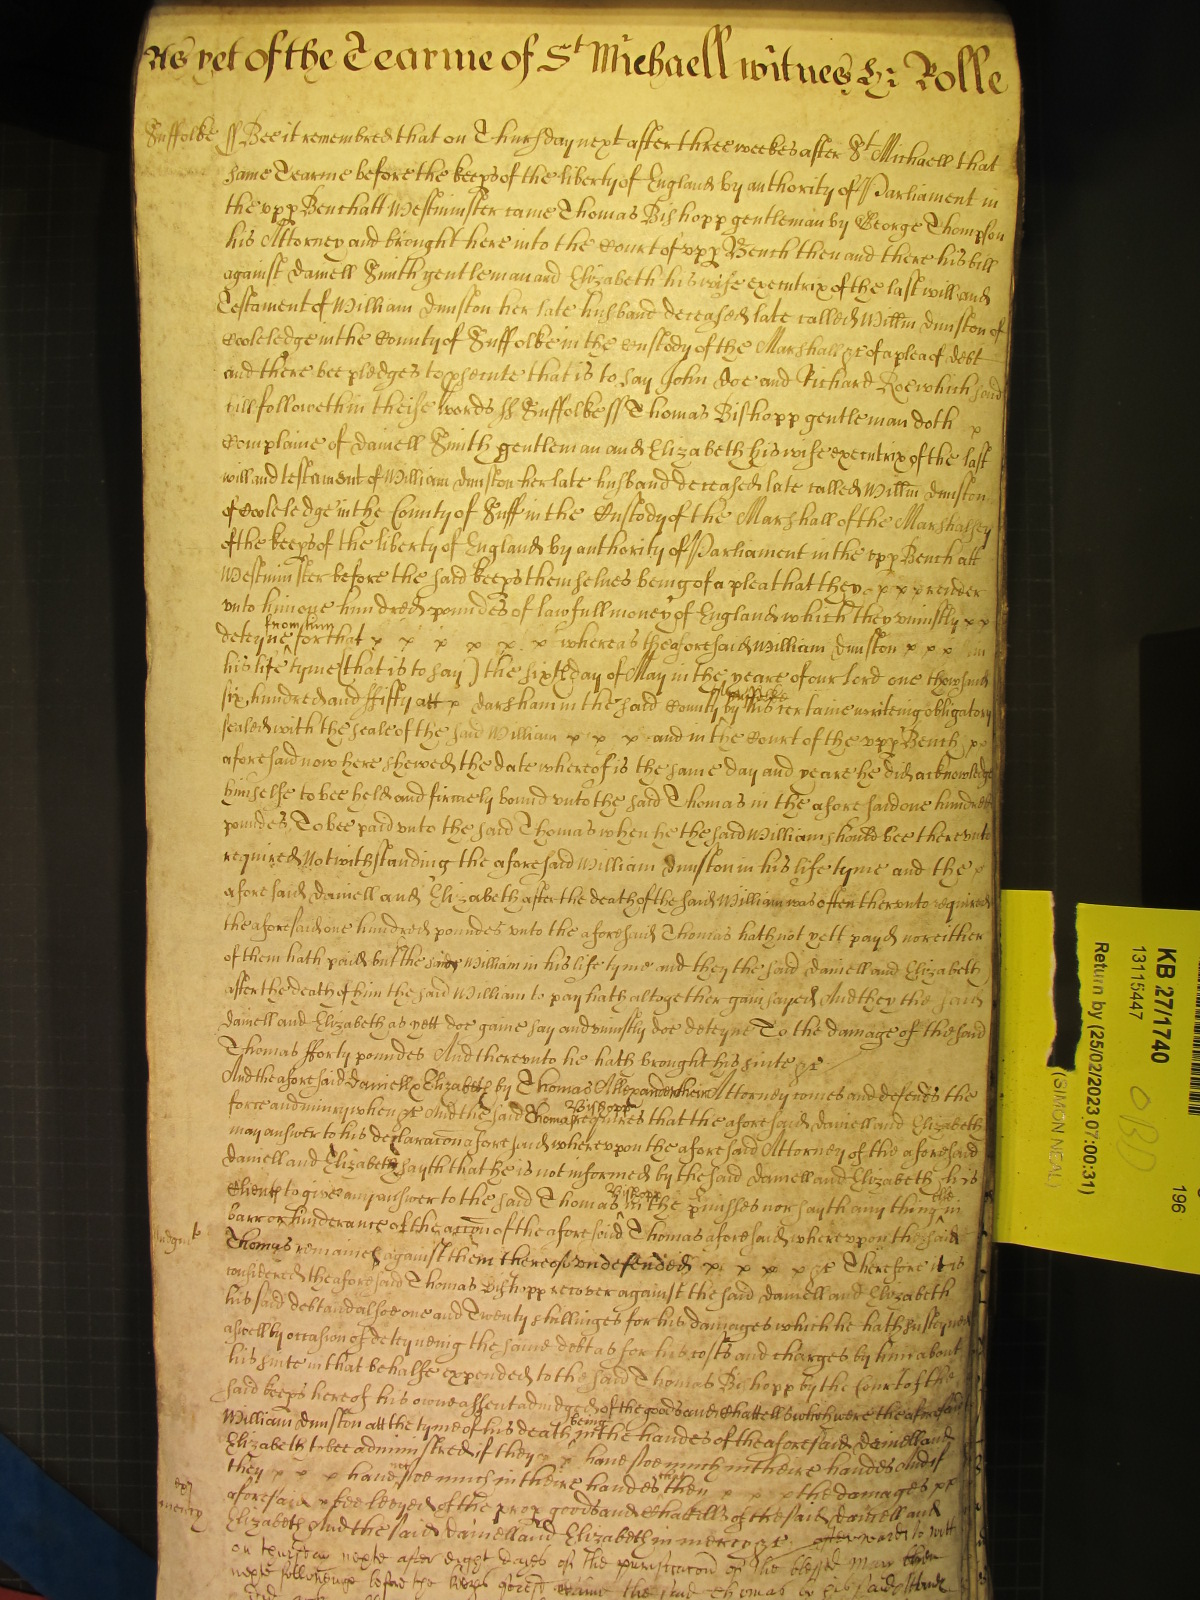 As yet of the Tearme of St Michaell witnes Hi Rolle
Suffolke ss Bee it remembred that on Thursday next after three weekes after St Michaell that
same Tearme before the keeps of the liberty of England by authority of Parliament in
the upp Bench att Westminster came Thomas Bishopp gentleman by George Thompson
his Attorney and brought here into the Court of upp Bench then and there his bill
against Daniell Smith gentleman and Elizabeth his wife executrix of the last will and
Testament of William Dunston her late husband deceased late called Willm Dunston of
in the County of Suffolke in the Custody of the Marshall &c of a plea of debt
and there bee pledges to psecute that is to say John Doe and Richard Roe which said
bill followeth in theise words ss Suffolke ss Thomas Bishopp gentleman doth x
Complaine of Daniell Smith gentleman and Elizabeth his wife executrix of the last
will and testament of William Dunston her late husband deceased late called Willm Dunston
of in the County of Suff in the Custody of the Marshall of the Marshalsey
of the keeps of the liberty of England by authority of Parliament in the upp Bench att
Westminster before the said keeps themselues being of a plea that they x x x render
unto him one hundred poundes of lawfull money of England which they uniustly x x
deteyne from him for that x x x x x x whereas the aforesaid William Dunston x x x in
his life tyme (that is to say) the sixth day of May in the yeare of our Lord one thowsand
six hundred and ffifty att x Darsham in the said County by his certaine writeing obligatory
sealed with the seale of the said William x x x and in the Court of the upp Bench x
aforesaid now here shewed the date whereof is the same day and yeare he did acknowledge
himselfe to bee held and firmely bound unto the said Thomas in the aforesaid one hundred
poundes To bee paid unto the said Thomas when he the said William should bee thereunto
required Notwithstanding the aforesaid William Dunston in his life tyme and the x
aforesaid Daniell and Elizabeth after the death of the said William was often therunto required
the aforesaid one hundred poundes unto the aforesaid Thomas hath not yett payd nor either
of them hath paid but the said William in his life tyme and they the said Daniell and Elizabeth
after the death of him the said William to pay hath altogether gainsayed And they the said
Daniell and Elizabeth as yett doe gainesay and uniustly doe deteyne To the damage of the said
Thomas fforty poundes And thereunto he hath brought his suite &c
And the aforesaid Daniell & Elizabeth by Thomas Allexander their Attorney comes and defends the
force and iniury when &c And the said Thomas Bishopp requires that the aforesaid Daniell and Elizabeth
may answer to his declaracon aforesaid whereupon the aforesaid Attorney of the aforesaid
Daniell and Elizabeth sayth that he is not informed by the said Daniell and Elizabeth his
Clients to give any answer to the said Thomas Bishopp in the pmisses nor sayth any thing in
barr or hinderance of the accon of the aforesaid Thomas aforesaid whereupon the said
Judgmt Thomas remaines against them thereof undefended x x x x &c Therefore it is
considered the aforesaid Thomas Bishopp recover against the said Daniell and Elizabeth
his said debt and alsoe one and Twenty shillinges for his damages which he hath susteyned
aswell by occasion of deteyneing the same debt as for his costs and charges by him about
his suite in that behalfe expended to the said Thomas Bishopp by the Court of the
said keeps here of his owne assent adiudged of the goods and Chattells which were the aforesaid
William Dunston att the tyme of his death being in the handes of the aforesaid Daniell and
Elizabeth to bee administred if they x x have soe much in theire handes And if
they x x x have not soe much in theire handes then x x x the damages
aforesaid bee leveyed of the prop goods and Chattells of the said Daniell and
Elizabeth And the said Daniell and Elizabeth in mercy &c afterwards to witt
on next after eight dayes of the purificacon of the blessed Mary then
next followeinge before the keeps came the said Thomas by his said Attorney
KB 27/1740
13115447
Return by (25/02/2023 07:00:31)
(SIMON NEAL)
196